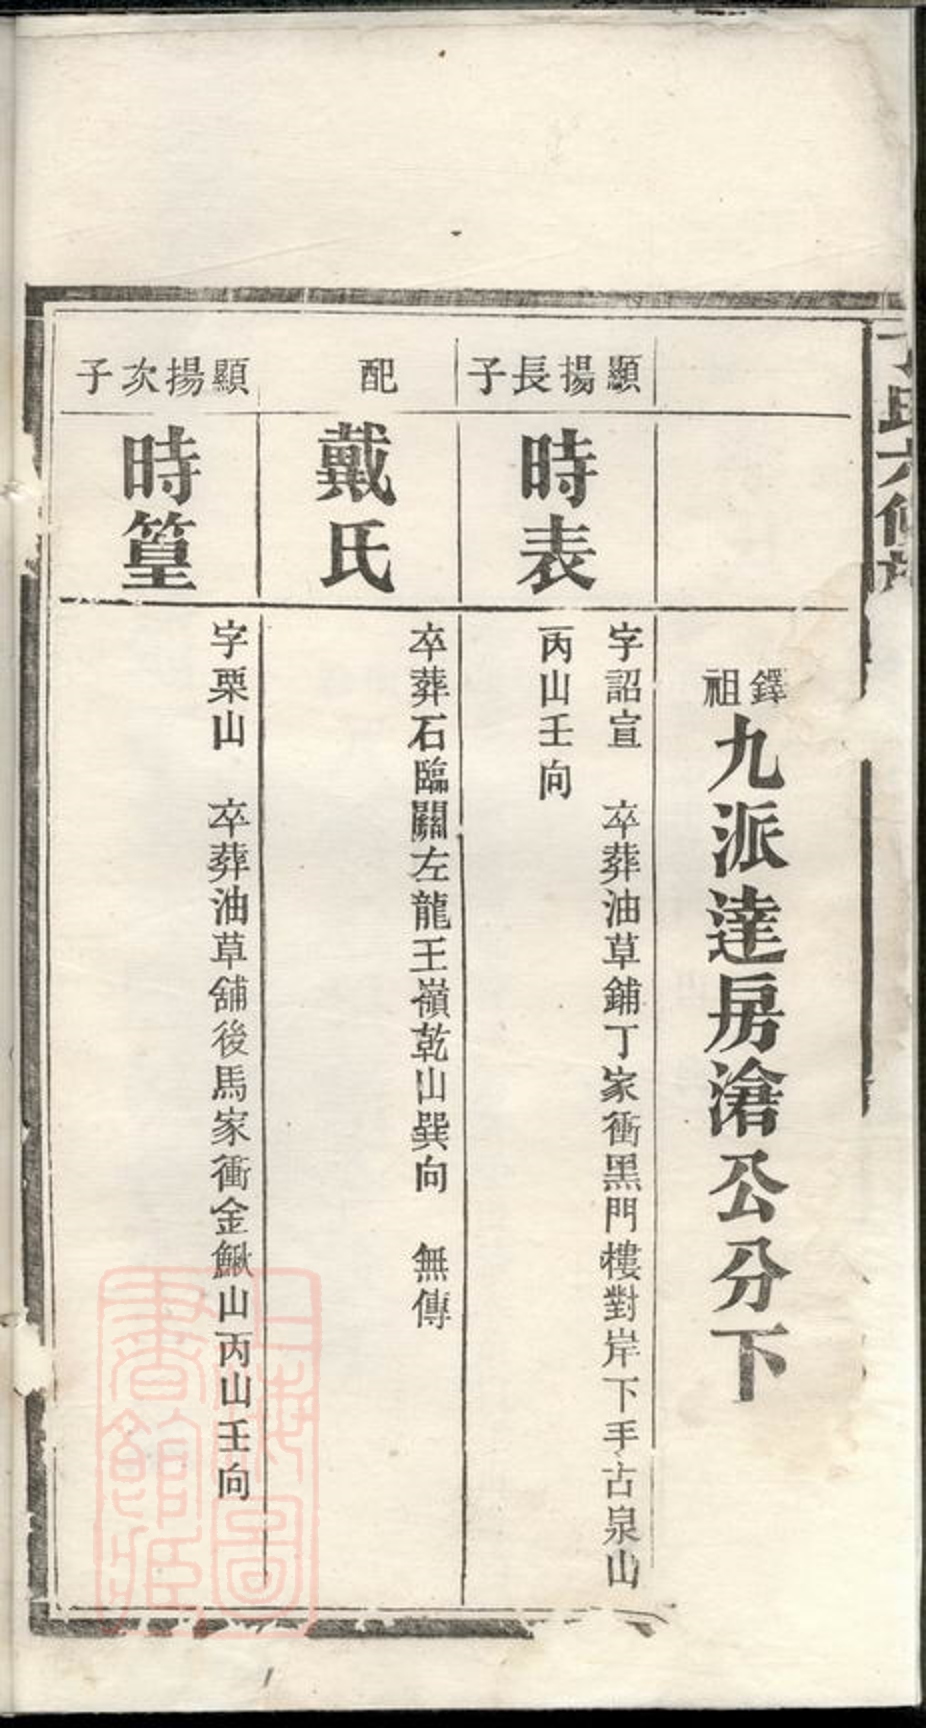 鐸祖九派達房滄公分下
顯揚長子
時表
字詔宣　卒葬油草鋪丁家衝黑門樓對岸下手古泉山
丙山壬向
配
戴氏
卒葬石臨關左龍王嶺乾山巽向　無傳
顯揚次子
時篁
字栗山　卒葬油草舖後馬家衝金鰍山丙山壬向
上海圖書館藏